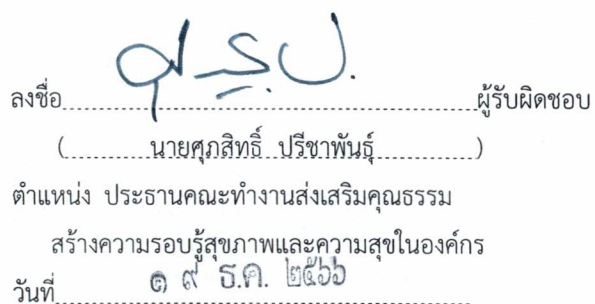 ลงชื่อ ผู้รับผิดชอบ
( นายศุภสิทธิ์ ปรีชาพันธุ์ )
ตำแหน่ง ประธานคณะทำงานส่งเสริมคุณธรรม
สร้างความรอบรู้สุขภาพและความสุขในองค์กร
วันที่ ๑ ๙ ธ.ค. ๒๕๖๖